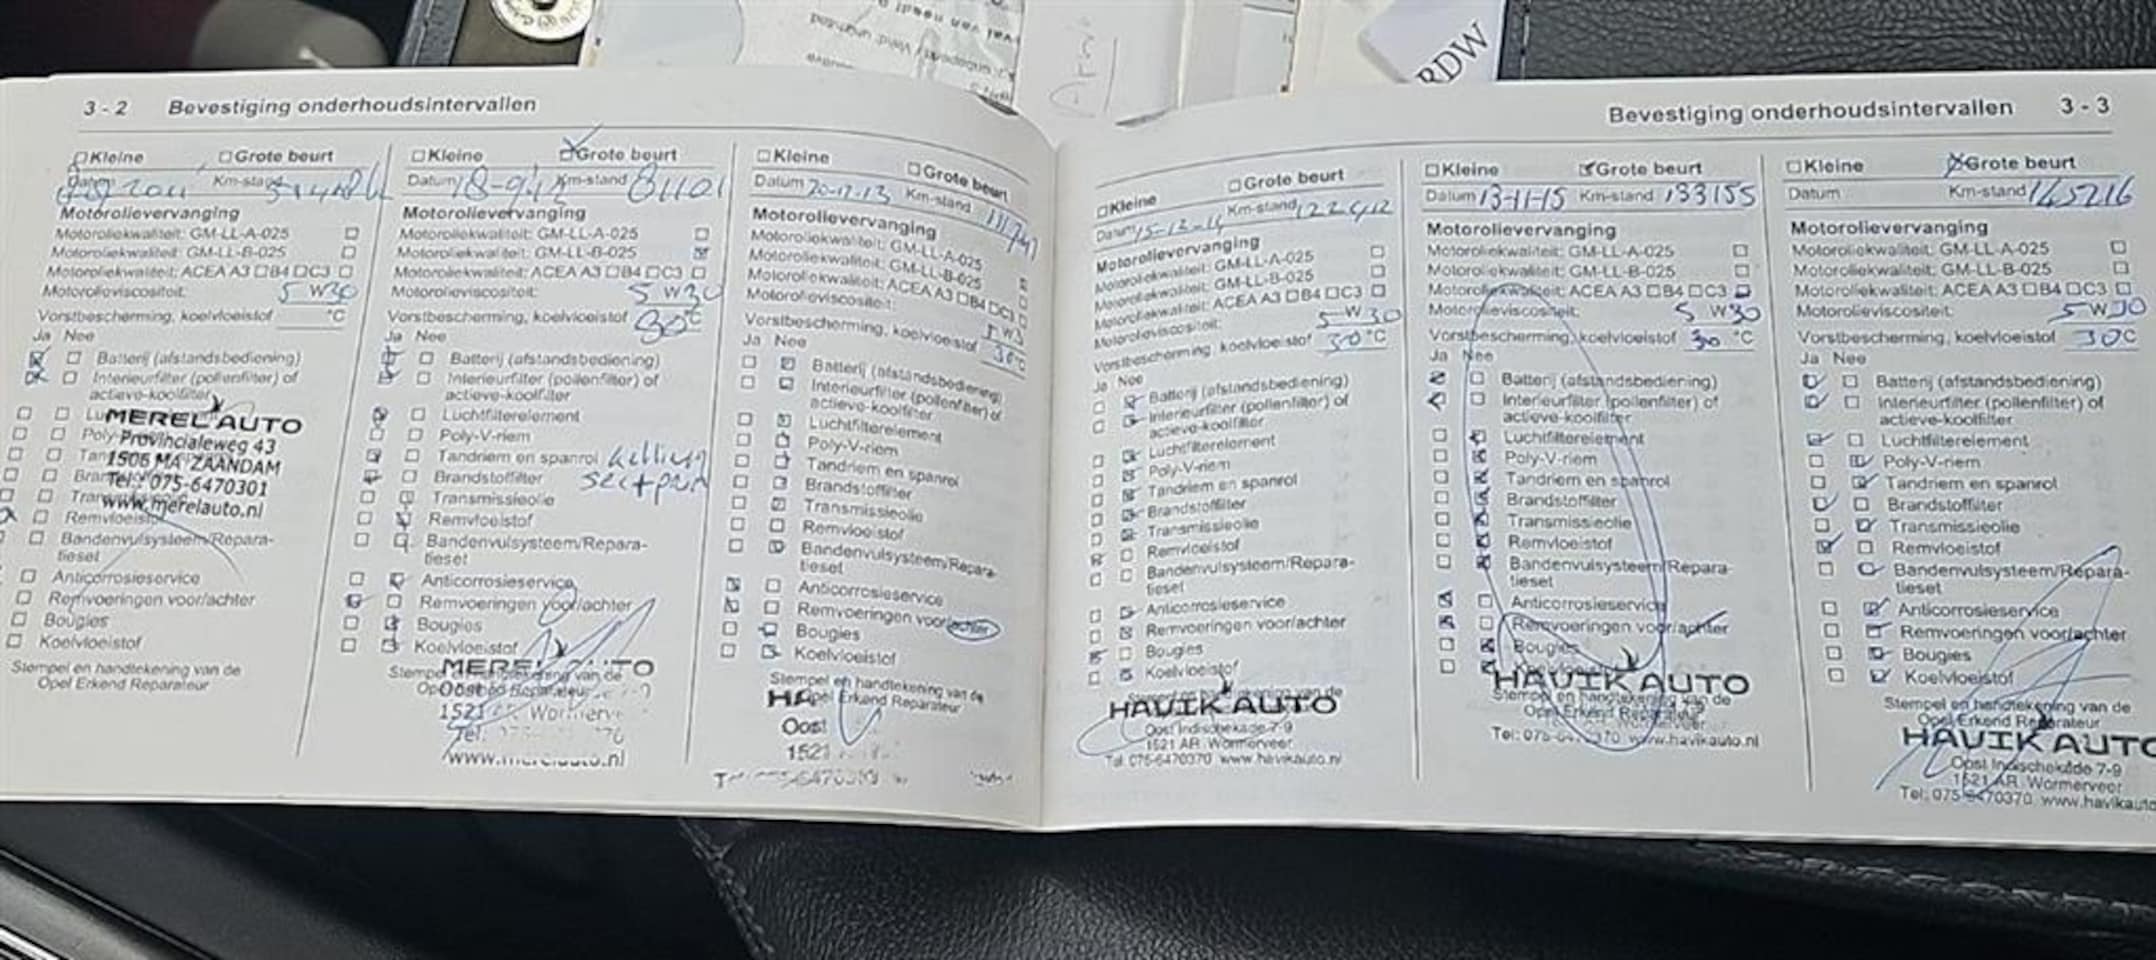 RDW
3 - 2 Bevestiging onderhoudsintervallen
Kleine Grote beurt
Datum 2011 Km-stand
Motorolievervanging
Motoroliekwaliteit: GM-LL-A-025
Motoroliekwaliteit: GM-LL-B-025
Motoroliekwaliteit: ACEA A3 B4 C3
Motorolieviscositeit: 5 W30
Vorstbescherming, koelvloeistof °C
Ja Nee
Batterij (afstandsbediening)
Interieurfilter (pollenfilter) of
actieve-koolfilter
MEREL AUTO
Provincialeweg 43
1506 MA ZAANDAM
Tel.: 075-6470301
www.merelauto.nl
Remvloeistof
Bandenvulsysteem/Repara-
tieset
Anticorrosieservice
Remvoeringen voor/achter
Bougies
Koelvloeistof
Stempel en handtekening van de
Opel Erkend Reparateur
Kleine Grote beurt
Datum 18-9-12 Km-stand 81101
Motorolievervanging
Motoroliekwaliteit: GM-LL-A-025
Motoroliekwaliteit: GM-LL-B-025
Motoroliekwaliteit: ACEA A3 B4 C3
Motorolieviscositeit: 5 W30
Vorstbescherming, koelvloeistof 30°C
Ja Nee
Batterij (afstandsbediening)
Interieurfilter (pollenfilter) of
actieve-koolfilter
Luchtfilterelement
Poly-V-riem
Tandriem en spanrol
Brandstoffilter
Transmissieolie
Remvloeistof
Bandenvulsysteem/Repara-
tieset
Anticorrosieservice
Remvoeringen voor/achter
Bougies
Koelvloeistof
MEREL AUTO
1521
Tel.
Kleine Grote beurt
Datum 20-12-13 Km-stand
Motorolievervanging
Motoroliekwaliteit: GM-LL-A-025
Motoroliekwaliteit: GM-LL-B-025
Motoroliekwaliteit: ACEA A3 B4 C3
Motorolieviscositeit:
Vorstbescherming, koelvloeistof 30°C
Ja Nee
Batterij (afstandsbediening)
Interieurfilter (pollenfilter) of
actieve-koolfilter
Luchtfilterelement
Poly-V-riem
Tandriem en spanrol
Brandstoffilter
Transmissieolie
Remvloeistof
Bandenvulsysteem/Repara-
tieset
Anticorrosieservice
Remvoeringen voor/achter
Bougies
Koelvloeistof
Stempel en handtekening van de
Erkend Reparateur
Oost
1521
Bevestiging onderhoudsintervallen 3 - 3
Kleine Grote beurt
Datum 15-12-14 Km-stand
Motorolievervanging
Motoroliekwaliteit: GM-LL-A-025
Motoroliekwaliteit: GM-LL-B-025
Motoroliekwaliteit: ACEA A3 B4 C3
Motorolieviscositeit: 5 W 30
Vorstbescherming, koelvloeistof 30°C
Ja Nee
Batterij (afstandsbediening)
Interieurfilter (pollenfilter) of
actieve-koolfilter
Luchtfilterelement
Poly-V-riem
Tandriem en spanrol
Brandstoffilter
Transmissieolie
Remvloeistof
Bandenvulsysteem/Repara-
tieset
Anticorrosieservice
Remvoeringen voor/achter
Bougies
Koelvloeistof
HAVIK AUTO
Oost Indischekade 7-9
1521 AR Wormerveer
Tel. 075-6470370 www.havikauto.nl
Kleine Grote beurt
Datum 13-11-15 Km-stand 133155
Motorolievervanging
Motoroliekwaliteit: GM-LL-A-025
Motoroliekwaliteit: GM-LL-B-025
Motoroliekwaliteit: ACEA A3 B4 C3
Motorolieviscositeit: 5 W30
Vorstbescherming, koelvloeistof 30 °C
Ja Nee
Batterij (afstandsbediening)
Interieurfilter (pollenfilter) of
actieve-koolfilter
Luchtfilterelement
Poly-V-riem
Tandriem en spanrol
Brandstoffilter
Transmissieolie
Remvloeistof
Bandenvulsysteem/Repara-
tieset
Anticorrosieservice
Remvoeringen voor/achter
Bougies
Koelvloeistof
HAVIK AUTO
www.havikauto.nl
Kleine Grote beurt
Datum Km-stand 145216
Motorolievervanging
Motoroliekwaliteit: GM-LL-A-025
Motoroliekwaliteit: GM-LL-B-025
Motoroliekwaliteit: ACEA A3 B4 C3
Motorolieviscositeit: 5 W30
Vorstbescherming, koelvloeistof 30°C
Ja Nee
Batterij (afstandsbediening)
Interieurfilter (pollenfilter) of
actieve-koolfilter
Luchtfilterelement
Poly-V-riem
Tandriem en spanrol
Brandstoffilter
Transmissieolie
Remvloeistof
Bandenvulsysteem/Repara-
tieset
Anticorrosieservice
Remvoeringen voor/achter
Bougies
Koelvloeistof
Stempel en handtekening van de
Opel Erkend Reparateur
HAVIK AUTO
Oost Indischekade 7-9
1521 AR Wormerveer
Tel: 075-6470370 www.havikauto